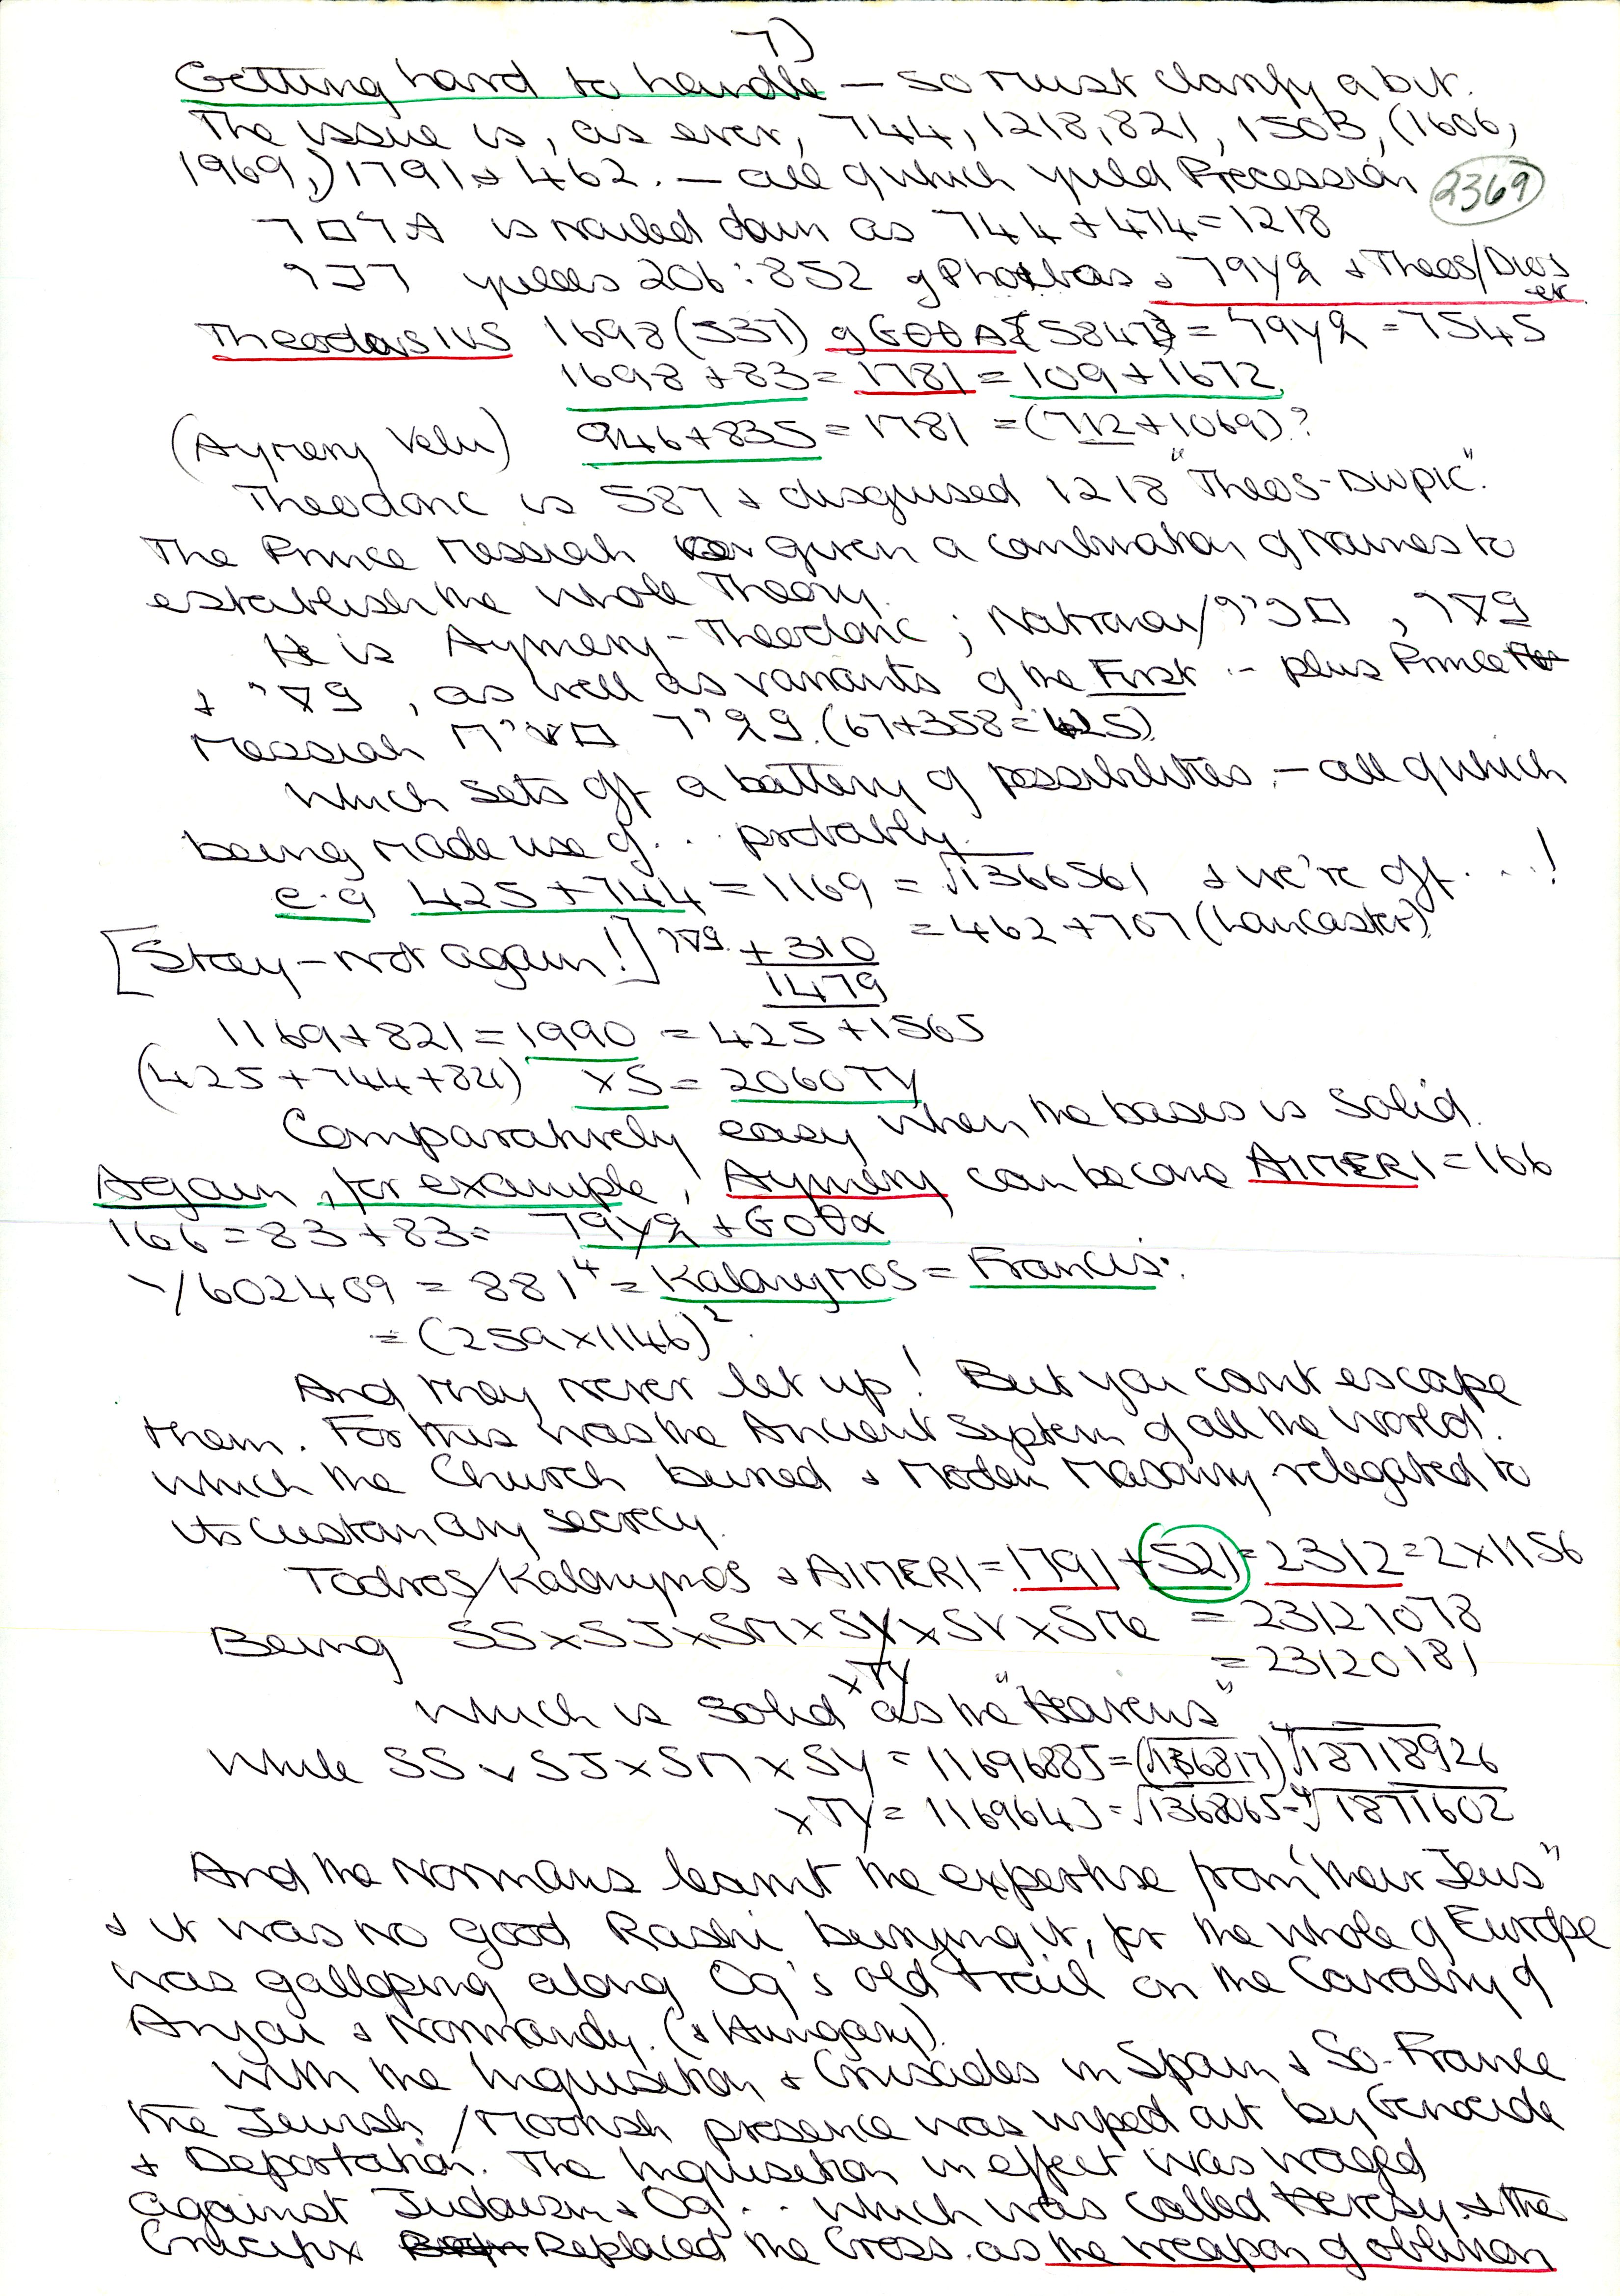 7)
Getting hard to handle — so must clarify a bit.
The issue is, as ever, 744, 1218, 821, 1503, (1606,
1969,) 1791 & 462. — all of which yield Precession
2369
is nailed down as 744 + 474 = 1218
yields 206 : 852 of Phoebus & & Theos/Dios
Theodosius 1698 (537) of = 7545
1698 + 83 = 1781 = 109 + 1672
(Aymery Velu) 946 + 835 = 1781 = (712 + 1069)?
Theodoric is 587 & disguised 1218 "Theos-DWPIC".
The Prince Messiah given a combination of names to
establish the whole Theory.
He is Aymery-Theodoric ;
& , as well as variants of the First – plus Prince
Messiah (67+358=425)
Which sets off a battery of possibilities – all of which
being made use of . . probably.
e.g 425 + 744 = 1169 = √1366561 & we're off . . . !
= 462 + 707 (Lancaster)
[Stay – not again!] + 310
1479
1169 + 821 = 1990 = 425 + 1565
(425 + 744 + 821) x S = 2060 TY
Comparatively easy when the bases is solid.
Again, for example, Aymery can become AIMERI = 166
166 = 83 + 83 =
602409 = 881⁴ = Kalonymos = Francis.
= (259 x 1146)²
And they never let up! But you can't escape
them. For this was the Ancient System of all the World.
Which the Church buried & Modern Masonry relegated to
its customary secrecy.
Todros/Kalonymos & AIMERI = 1791 + 521 = 2312 = 2 x 1156
Being SS x SJ x SM x SY x SV x SMe = 23121078
x TY = 23120181
Which is solid as the "Heavens"
While SS x SJ x SM x SY = 11696885 = (√136817) ⁴√18718926
x TY = 1169643 = √1368065 = ⁴√1871602
And the Normans learnt the expertise from "their Jews"
& it was no good Rashi burying it, for the whole of Europe
was galloping along Og's old trail on the Cavalry of
Anjou & Normandy. (& Hungary).
With the Inquisition & Crusades in Spain & So. France
the Jewish / Moorish presence was wiped out by Genocide
& Deportation. The Inquisition in effect was waged
against Judaism & Og . . which was called Heresy & the
Crucifix Replaced the Cross. as the weapon of oblivion